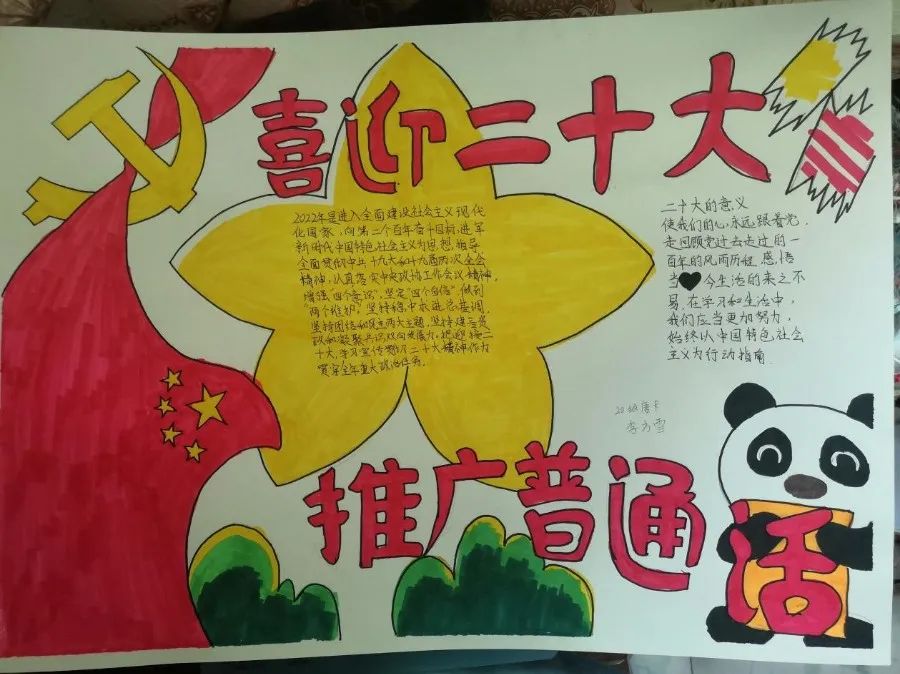 喜迎二十大
2022年是进入全面建设社会主义现代
化国家、向第二个百年奋斗目标进军
新时代中国特色社会主义为思想指导
全面贯彻中共十九大和十九届两次全会
精神，认真落实中央政协工作会议精神，
增强"四个意识"、坚定"四个自信"、做到
"两个维护"，坚持稳中求进总基调，
坚持团结和民主两大主题，坚持建言资
政和凝聚共识双向发力，把迎接二
十大、学习宣传贯彻二十大精神作为
贯穿全年重大政治任务。
二十大的意义
使我们的心永远跟着党，
走回顾党过去走过的一
百年的风雨历程，感悟
当今生活的来之不
易，在学习和生活中，
我们应当更加努力，
始终以中国特色社会
主义为行动指南
20级唐卡
李方雪
推广普通话